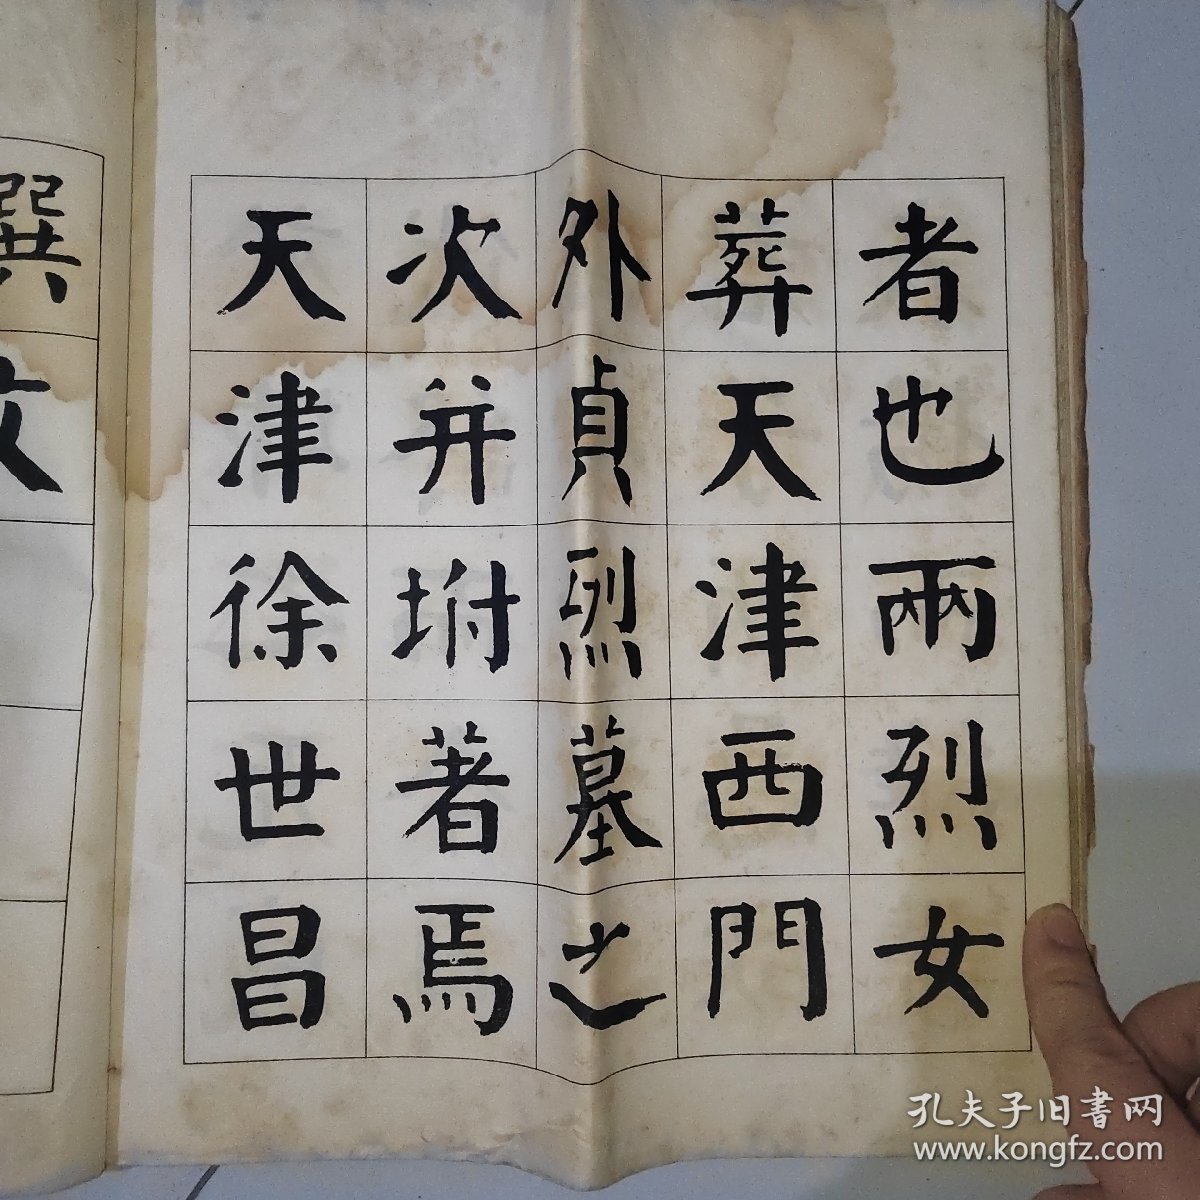 者也兩烈女
葬天津西門
外貞烈墓之
次并坿著焉
天津徐世昌
撰文
孔夫子旧书网
www.kongfz.com